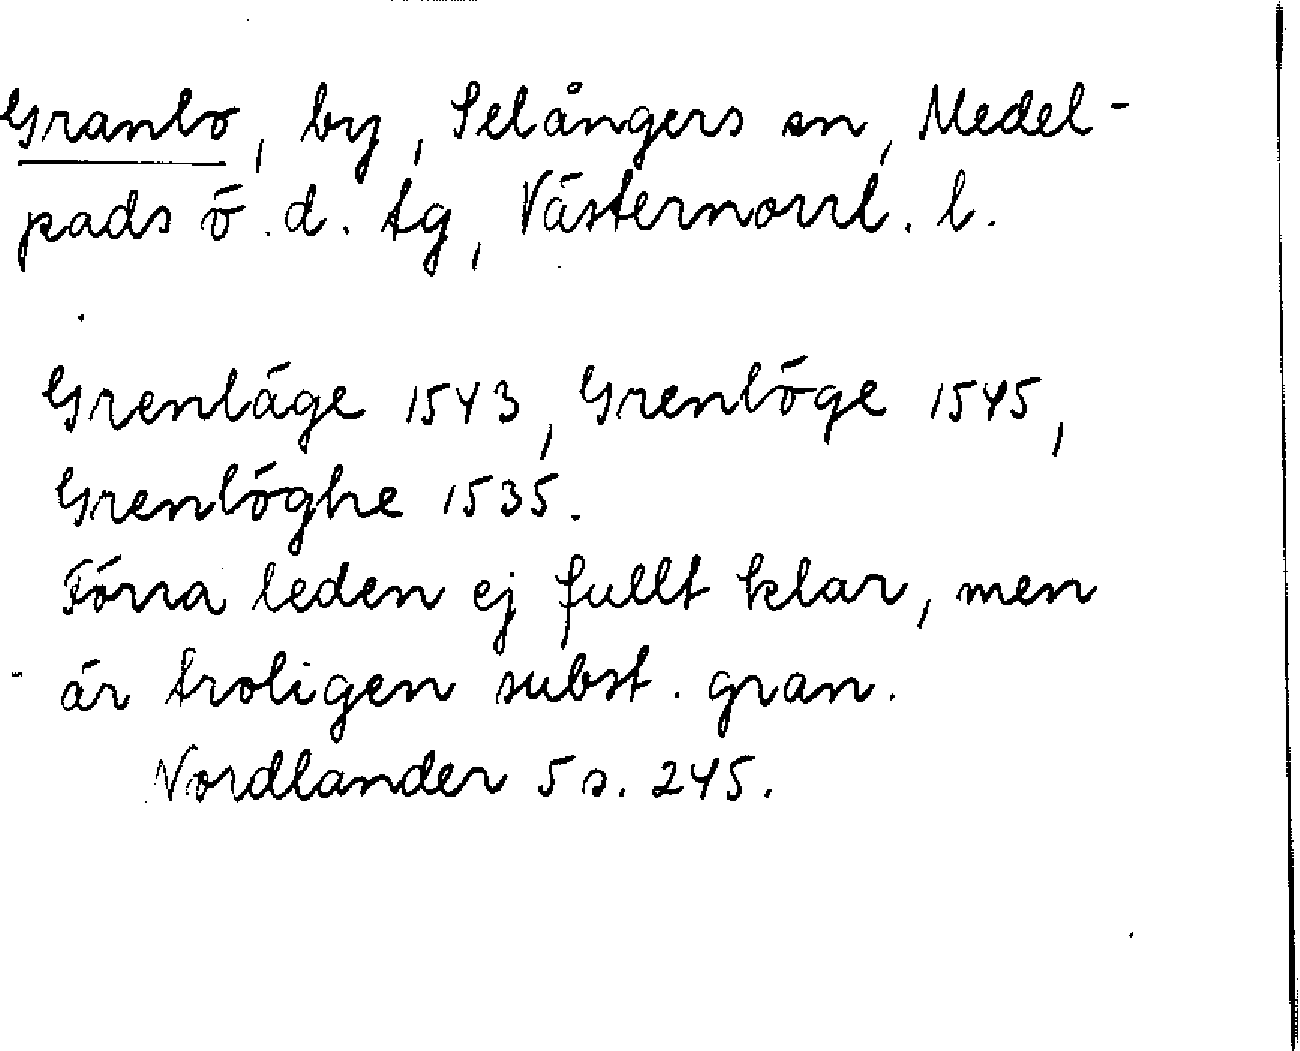 Granlo, by, Selångers sn, Medel-
pads ö. d. tg, Västernorrl. l.
Grenläge 1543, Grenlöge 1545,
Grenlöghe 1535.
Förra leden ej fullt klar, men
är troligen subst. gran.
Nordlander 5 s. 245.